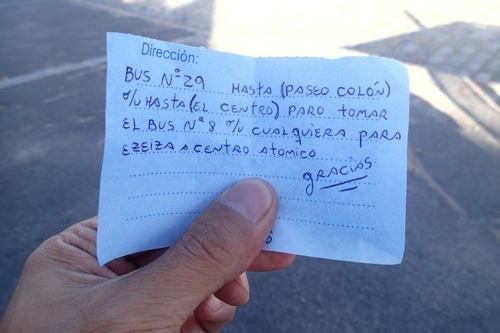 Dirección:
BUS Nº 29 HASTA (PASEO COLÓN)
o/u HASTA (EL CENTRO) PARO TOMAR
EL BUS Nº 8 o/u CUALQUIERA PARA
EZEIZA A CENTRO ATOMICO
gRACiAS